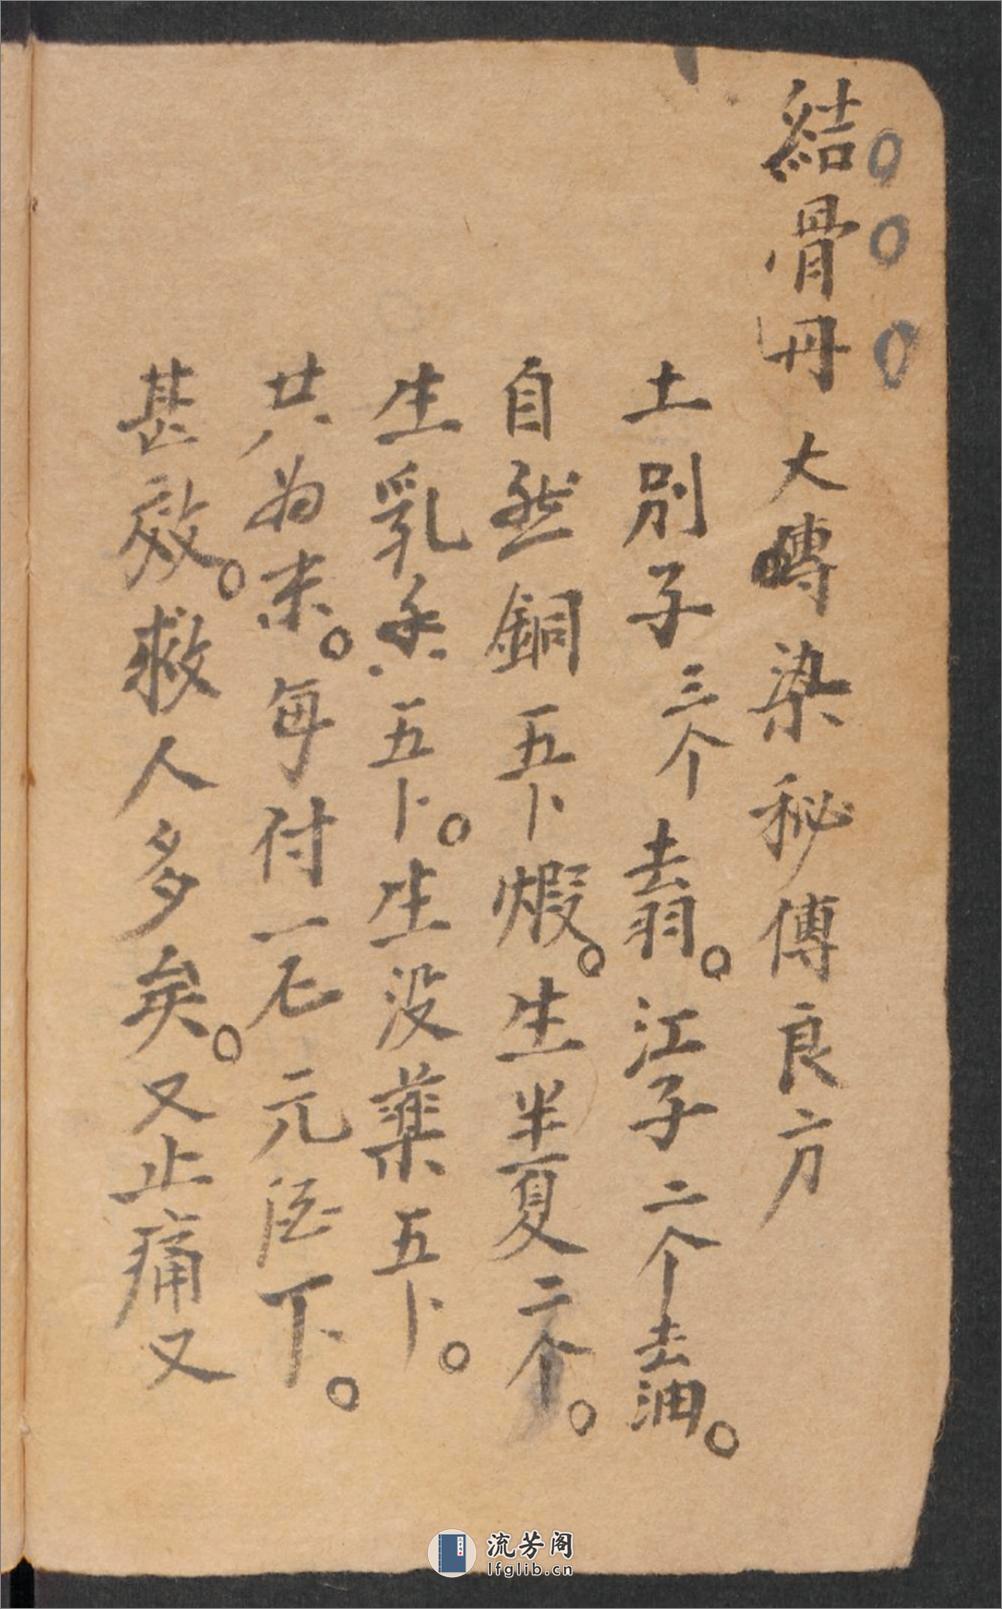 結骨丹大傳染秘傳良方
土別子三个去翁。江子二个去油。
自然銅五卜煆。生半夏二个。
生乳香五卜。生没薬五卜。
共为末。每付一厘元酒下。
甚效。救人多矣。又止痛又
流芳阁
lfglib.cn